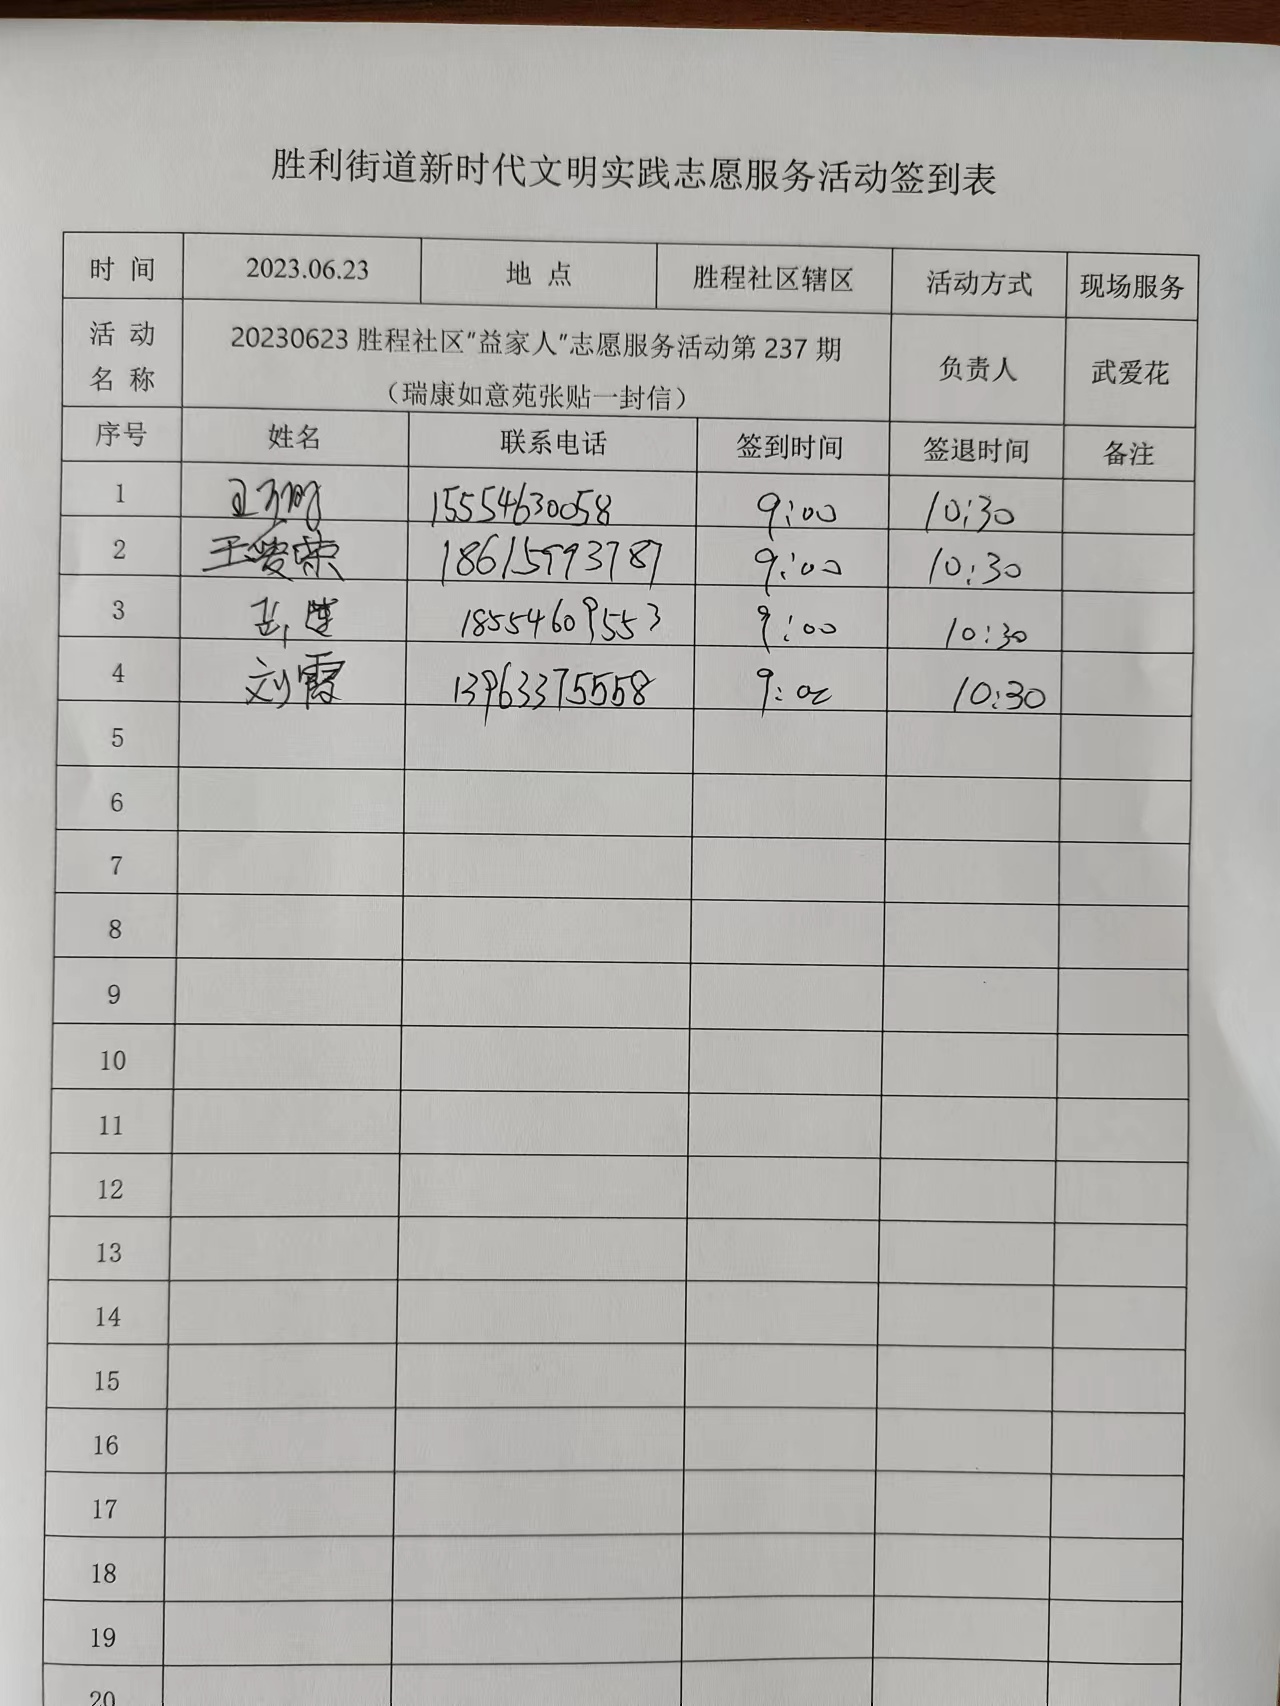 胜利街道新时代文明实践志愿服务活动签到表
时 间 2023.06.23 地 点 胜程社区辖区 活动方式 现场服务
活 动 名 称 20230623 胜程社区“益家人”志愿服务活动第 237 期 负责人 武爱花
（瑞康如意苑张贴一封信）
序号 姓名 联系电话 签到时间 签退时间 备注
1 15554630058 9:00 10:30
2 18615993787 9:00 10:30
3 18554609553 9:00 10:30
4 刘霞 13963375558 9:00 10:30
5
6
7
8
9
10
11
12
13
14
15
16
17
18
19
20